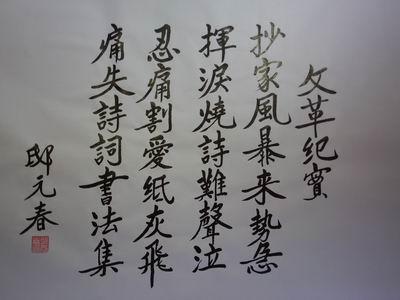 文革纪實
抄家風暴来勢急
揮淚燒詩難聲泣
忍痛割愛纸灰飛
痛失詩詞書法集
邸元春